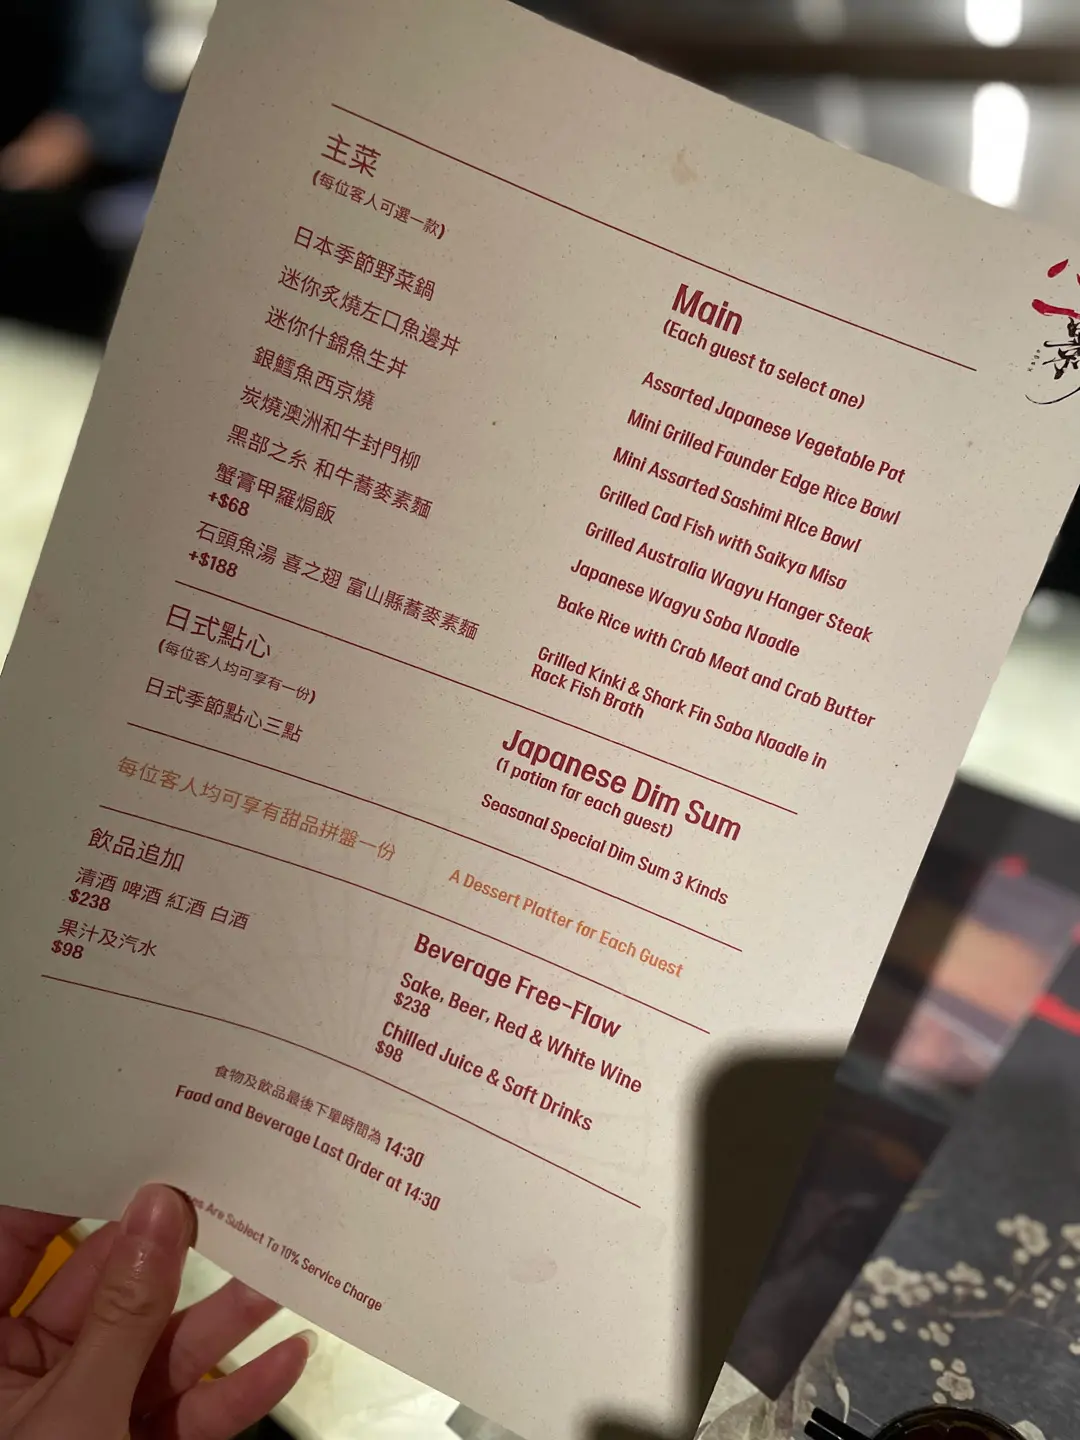 主菜
(每位客人可選一款)
日本季節野菜鍋
迷你炙燒左口魚邊丼
迷你什錦魚生丼
銀鱈魚西京燒
炭燒澳洲和牛封門柳
黑部之糸 和牛蕎麥素麵
蟹膏甲羅焗飯
+$68
石頭魚湯 喜之翅 富山縣蕎麥素麵
+$188
Main
(Each guest to select one)
Assorted Japanese Vegetable Pot
Mini Grilled Founder Edge Rice Bowl
Mini Assorted Sashimi RIce Bowl
Grilled Cod Fish with Saikya Miso
Grilled Australia Wagyu Hanger Steak
Japanese Wagyu Soba Noodle
Bake Rice with Crab Meat and Crab Butter
Grilled Kinki & Shark Fin Soba Noodle in
Rock Fish Broth
日式點心
(每位客人均可享有一份)
日式季節點心三點
Japanese Dim Sum
(1 potion for each guest)
Seasonal Special Dim Sum 3 Kinds
每位客人均可享有甜品拼盤一份
A Dessert Platter for Each Guest
飲品追加
清酒 啤酒 紅酒 白酒
$238
果汁及汽水
$98
Beverage Free-Flow
Sake, Beer, Red & White Wine
$238
Chilled Juice & Soft Drinks
$98
食物及飲品最後下單時間為 14:30
Food and Beverage Last Order at 14:30
Are Subject To 10% Service Charge